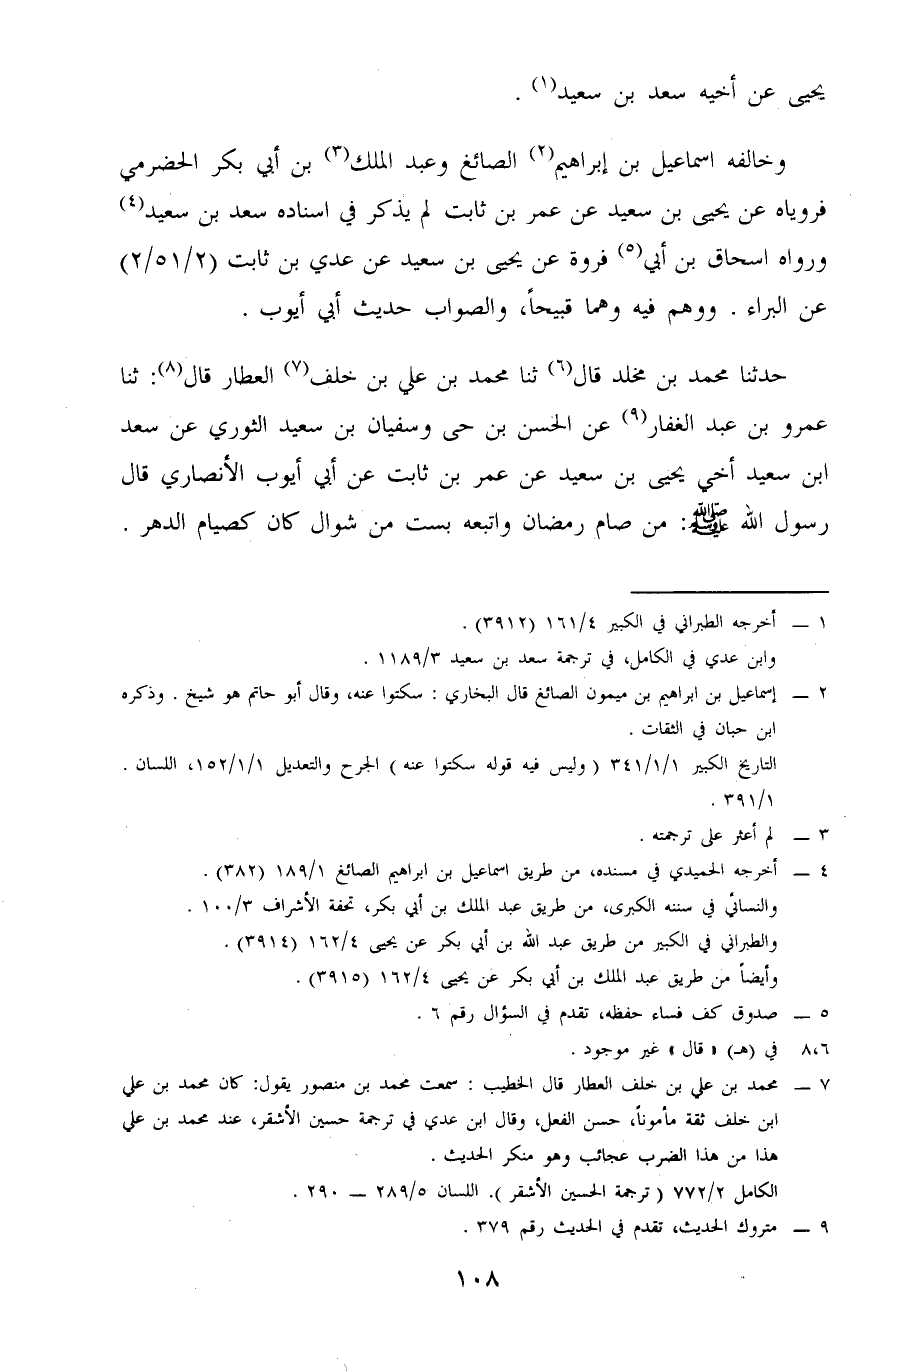 يحيى عن أخيه سعد بن سعيد(١) .
وخالفه اسماعيل بن إبراهيم(٢) الصائغ وعبد الملك(٣) بن أبي بكر الحضرمي
فروياه عن يحيى بن سعيد عن عمر بن ثابت لم يذكر في اسناده سعد بن سعيد(٤)
ورواه اسحاق بن أبي(٥) فروة عن يحيى بن سعيد عن عدي بن ثابت (٢/٥١/٢)
عن البراء . ووهم فيه وهما قبيحاً، والصواب حديث أبي أيوب .
حدثنا محمد بن مخلد قال(٦) ثنا محمد بن علي بن خلف(٧) العطار قال(٨): ثنا
عمرو بن عبد الغفار(٩) عن الحسن بن حى وسفيان بن سعيد الثوري عن سعد
ابن سعيد أخي يحيى بن سعيد عن عمر بن ثابت عن أبي أيوب الأنصاري قال
رسول الله ﷺ: من صام رمضان واتبعه بست من شوال كان كصيام الدهر .
١ — أخرجه الطبراني في الكبير ١٦١/٤ (٣٩١٢) .
وابن عدي في الكامل، في ترجمة سعد بن سعيد ١١٨٩/٣ .
٢ — إسماعيل بن ابراهيم بن ميمون الصائغ قال البخاري : سكتوا عنه، وقال أبو حاتم هو شيخ . وذكره
ابن حبان في الثقات .
التاريخ الكبير ٣٤١/١/١ ( وليس فيه قوله سكتوا عنه ) الجرح والتعديل ١٥٢/١/١، اللسان .
٣٩١/١ .
٣ — لم أعثر على ترجمته .
٤ — أخرجه الحميدي في مسنده، من طريق اسماعيل بن ابراهيم الصائغ ١٨٩/١ (٣٨٢) .
والنسائي في سننه الكبرى، من طريق عبد الملك بن أبي بكر، تحفة الأشراف ١٠٠/٣ .
والطبراني في الكبير من طريق عبد الله بن أبي بكر عن يحيى ١٦٢/٤ (٣٩١٤) .
وأيضاً من طريق عبد الملك بن أبي بكر عن يحيى ١٦٢/٤ (٣٩١٥) .
٥ — صدوق كف فساء حفظه، تقدم في السؤال رقم ٦ .
٨،٦ في (هـ) « قال » غير موجود .
٧ — محمد بن علي بن خلف العطار قال الخطيب : سمعت محمد بن منصور يقول: كان محمد بن علي
ابن خلف ثقة مأموناً، حسن الفعل، وقال ابن عدي في ترجمة حسين الأشقر، عند محمد بن علي
هذا من هذا الضرب عجائب وهو منكر الحديث .
الكامل ٧٧٢/٢ ( ترجمة الحسين الأشقر ). اللسان ٢٨٩/٥ — ٢٩٠ .
٩ — متروك الحديث، تقدم في الحديث رقم ٣٧٩ .
١٠٨